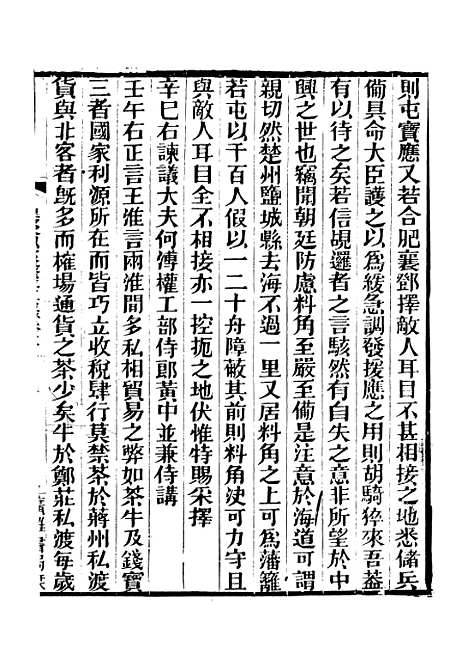 則屯寶應又若合肥襄鄧擇敵人耳目不甚相接之地悉儲兵
備具命大臣護之以爲緩急調發援應之用則胡騎猝來吾葢
有以待之矣若信覘邏者之言駭然有自失之意非所望於中
興之世也竊聞朝廷防慮料角至嚴至備是注意於海道可謂
親切然楚州鹽城縣去海不過一里又居料角之上可爲藩籬
若屯以千百人假以一二十舟障蔽其前則料角決可力守且
與敵人耳目全不相接亦一控扼之地伏惟特賜采擇
辛巳右諫議大夫何溥權工部侍郎黃中並兼侍講
壬午右正言王淮言兩淮間多私相貿易之弊如茶牛及錢寶
三者國家利源所在而皆巧立收稅肆行莫禁茶於蔣州私渡
貨與北客者旣多而榷場通貨之茶少矣牛於鄭莊私渡每歲